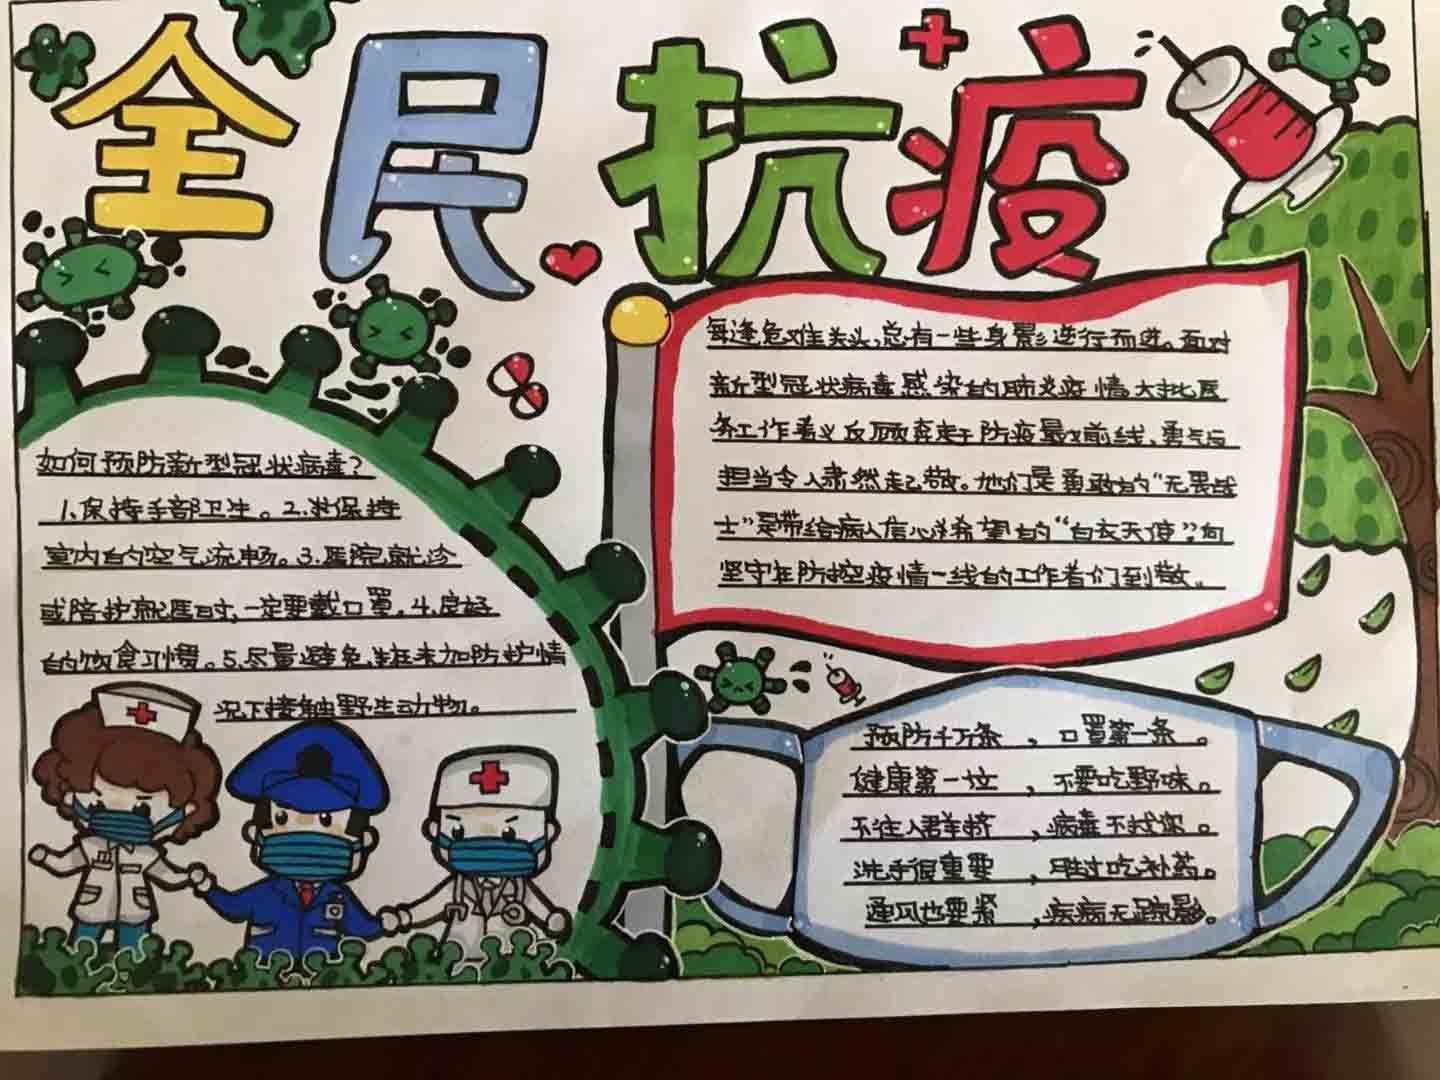 全民抗疫
每逢危难关头,总有一些身影逆行而进。面对
新型冠状病毒感染的肺炎疫情大批医
务工作者义反顾奔赴防疫最前线,勇气与
担当令人肃然起敬。他们是勇敢的“无畏战
士”是带给病人信心洣希望的“白衣天使”,向
坚守在防控疫情一线的工作者们到敬。
如何预防新型冠状病毒?
1.保持手部卫生。2.保持
室内的空气流畅。3.医院就诊
或陪护就医时,一定要戴口罩。4.良好
的饮食习惯。5.尽量避免在未加防护情
况下接触野生动物。
预防千万条,口罩第一条。
健康第一位,不要吃野味。
不往人群挤,病毒不找您。
洗手很重要,胜过吃补药。
通风也要紧,疾病无踪影。